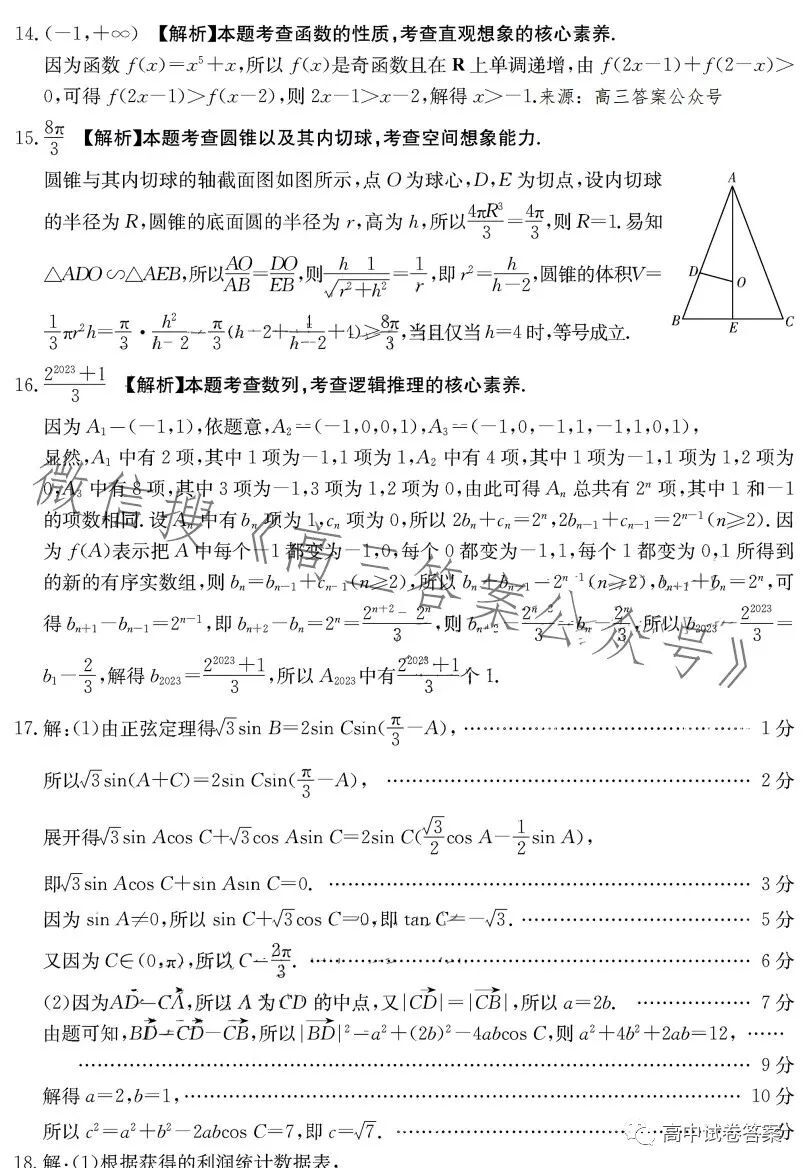 14. (−1,+∞) 【解析】本题考查函数的性质,考查直观想象的核心素养.
因为函数 f(x)=x⁵+x,所以 f(x)是奇函数且在 R 上单调递增,由 f(2x−1)+f(2−x)>
0,可得 f(2x−1)>f(x−2),则 2x−1>x−2,解得 x>−1.来源: 高三答案公众号
15. 8π/3 【解析】本题考查圆锥以及其内切球,考查空间想象能力.
圆锥与其内切球的轴截面图如图所示,点 O 为球心,D,E 为切点,设内切球
的半径为 R,圆锥的底面圆的半径为 r,高为 h,所以 4πR³/3=4π/3,则 R=1.易知
△ADO∽△AEB,所以 AO/AB=DO/EB,则 h 1/√(r²+h²)=1/r,即 r²=h/(h−2),圆锥的体积V=
1/3 πr²h=π/3·h²/(h−2)=π/3(h−2+4/(h−2)+4)≥8π/3,当且仅当 h=4 时,等号成立.
A
D
O
B
E
C
16. (2²⁰²³+1)/3 【解析】本题考查数列,考查逻辑推理的核心素养.
因为 A₁=(−1,1),依题意,A₂=(−1,0,0,1),A₃=(−1,0,−1,1,−1,1,0,1),
显然,A₁ 中有 2 项,其中 1 项为−1,1 项为 1,A₂ 中有 4 项,其中 1 项为−1,1 项为 1,2 项为
0,A₃ 中有 8 项,其中 3 项为−1,3 项为 1,2 项为 0,由此可得 Aₙ 总共有 2ⁿ 项,其中 1 和−1
的项数相同.设 Aₙ 中有 bₙ 项为 1,cₙ 项为 0,所以 2bₙ+cₙ=2ⁿ,2bₙ₋₁+cₙ₋₁=2ⁿ⁻¹(n≥2).因
为 f(A)表示把 A 中每个−1 都变为−1,0,每个 0 都变为−1,1,每个 1 都变为 0,1 所得到
的新的有序实数组,则 bₙ=bₙ₋₁+cₙ₋₁(n≥2),所以 bₙ+bₙ₋₁=2ⁿ⁻¹(n≥2),bₙ₊₁+bₙ=2ⁿ,可
得 bₙ₊₁−bₙ₋₁=2ⁿ⁻¹,即 bₙ₊₂−bₙ=2ⁿ=(2ⁿ⁺²−2ⁿ)/3,则 bₙ₊₂−2ⁿ⁺²/3=bₙ−2ⁿ/3,所以 b₂₀₂₃−2²⁰²³/3=
b₁−2/3,解得 b₂₀₂₃=(2²⁰²³+1)/3,所以 A₂₀₂₃中有(2²⁰²³+1)/3个 1.
微信搜《高三答案公众号》
17. 解:(1)由正弦定理得√3sin B=2sin Csin(π/3−A), …… 1 分
所以√3sin(A+C)=2sin Csin(π/3−A), …… 2 分
展开得√3sin Acos C+√3cos Asin C=2sin C(√3/2cos A−1/2sin A),
即√3sin Acos C+sin Asin C=0. …… 3 分
因为 sin A≠0,所以 sin C+√3cos C=0,即 tan C=−√3. …… 5 分
又因为 C∈(0,π),所以 C=2π/3. …… 6 分
(2)因为AD=CA,所以 A 为 CD 的中点,又|CD|=|CB|,所以 a=2b. …… 7 分
由题可知,BD=CD−CB,所以|BD|²=a²+(2b)²−4abcos C,则 a²+4b²+2ab=12, ……
…… 9 分
解得 a=2,b=1, …… 10 分
所以 c²=a²+b²−2abcos C=7,即 c=√7. …… 分
高中试卷答案
18. 解:(1)根据获得的利润统计数据表,